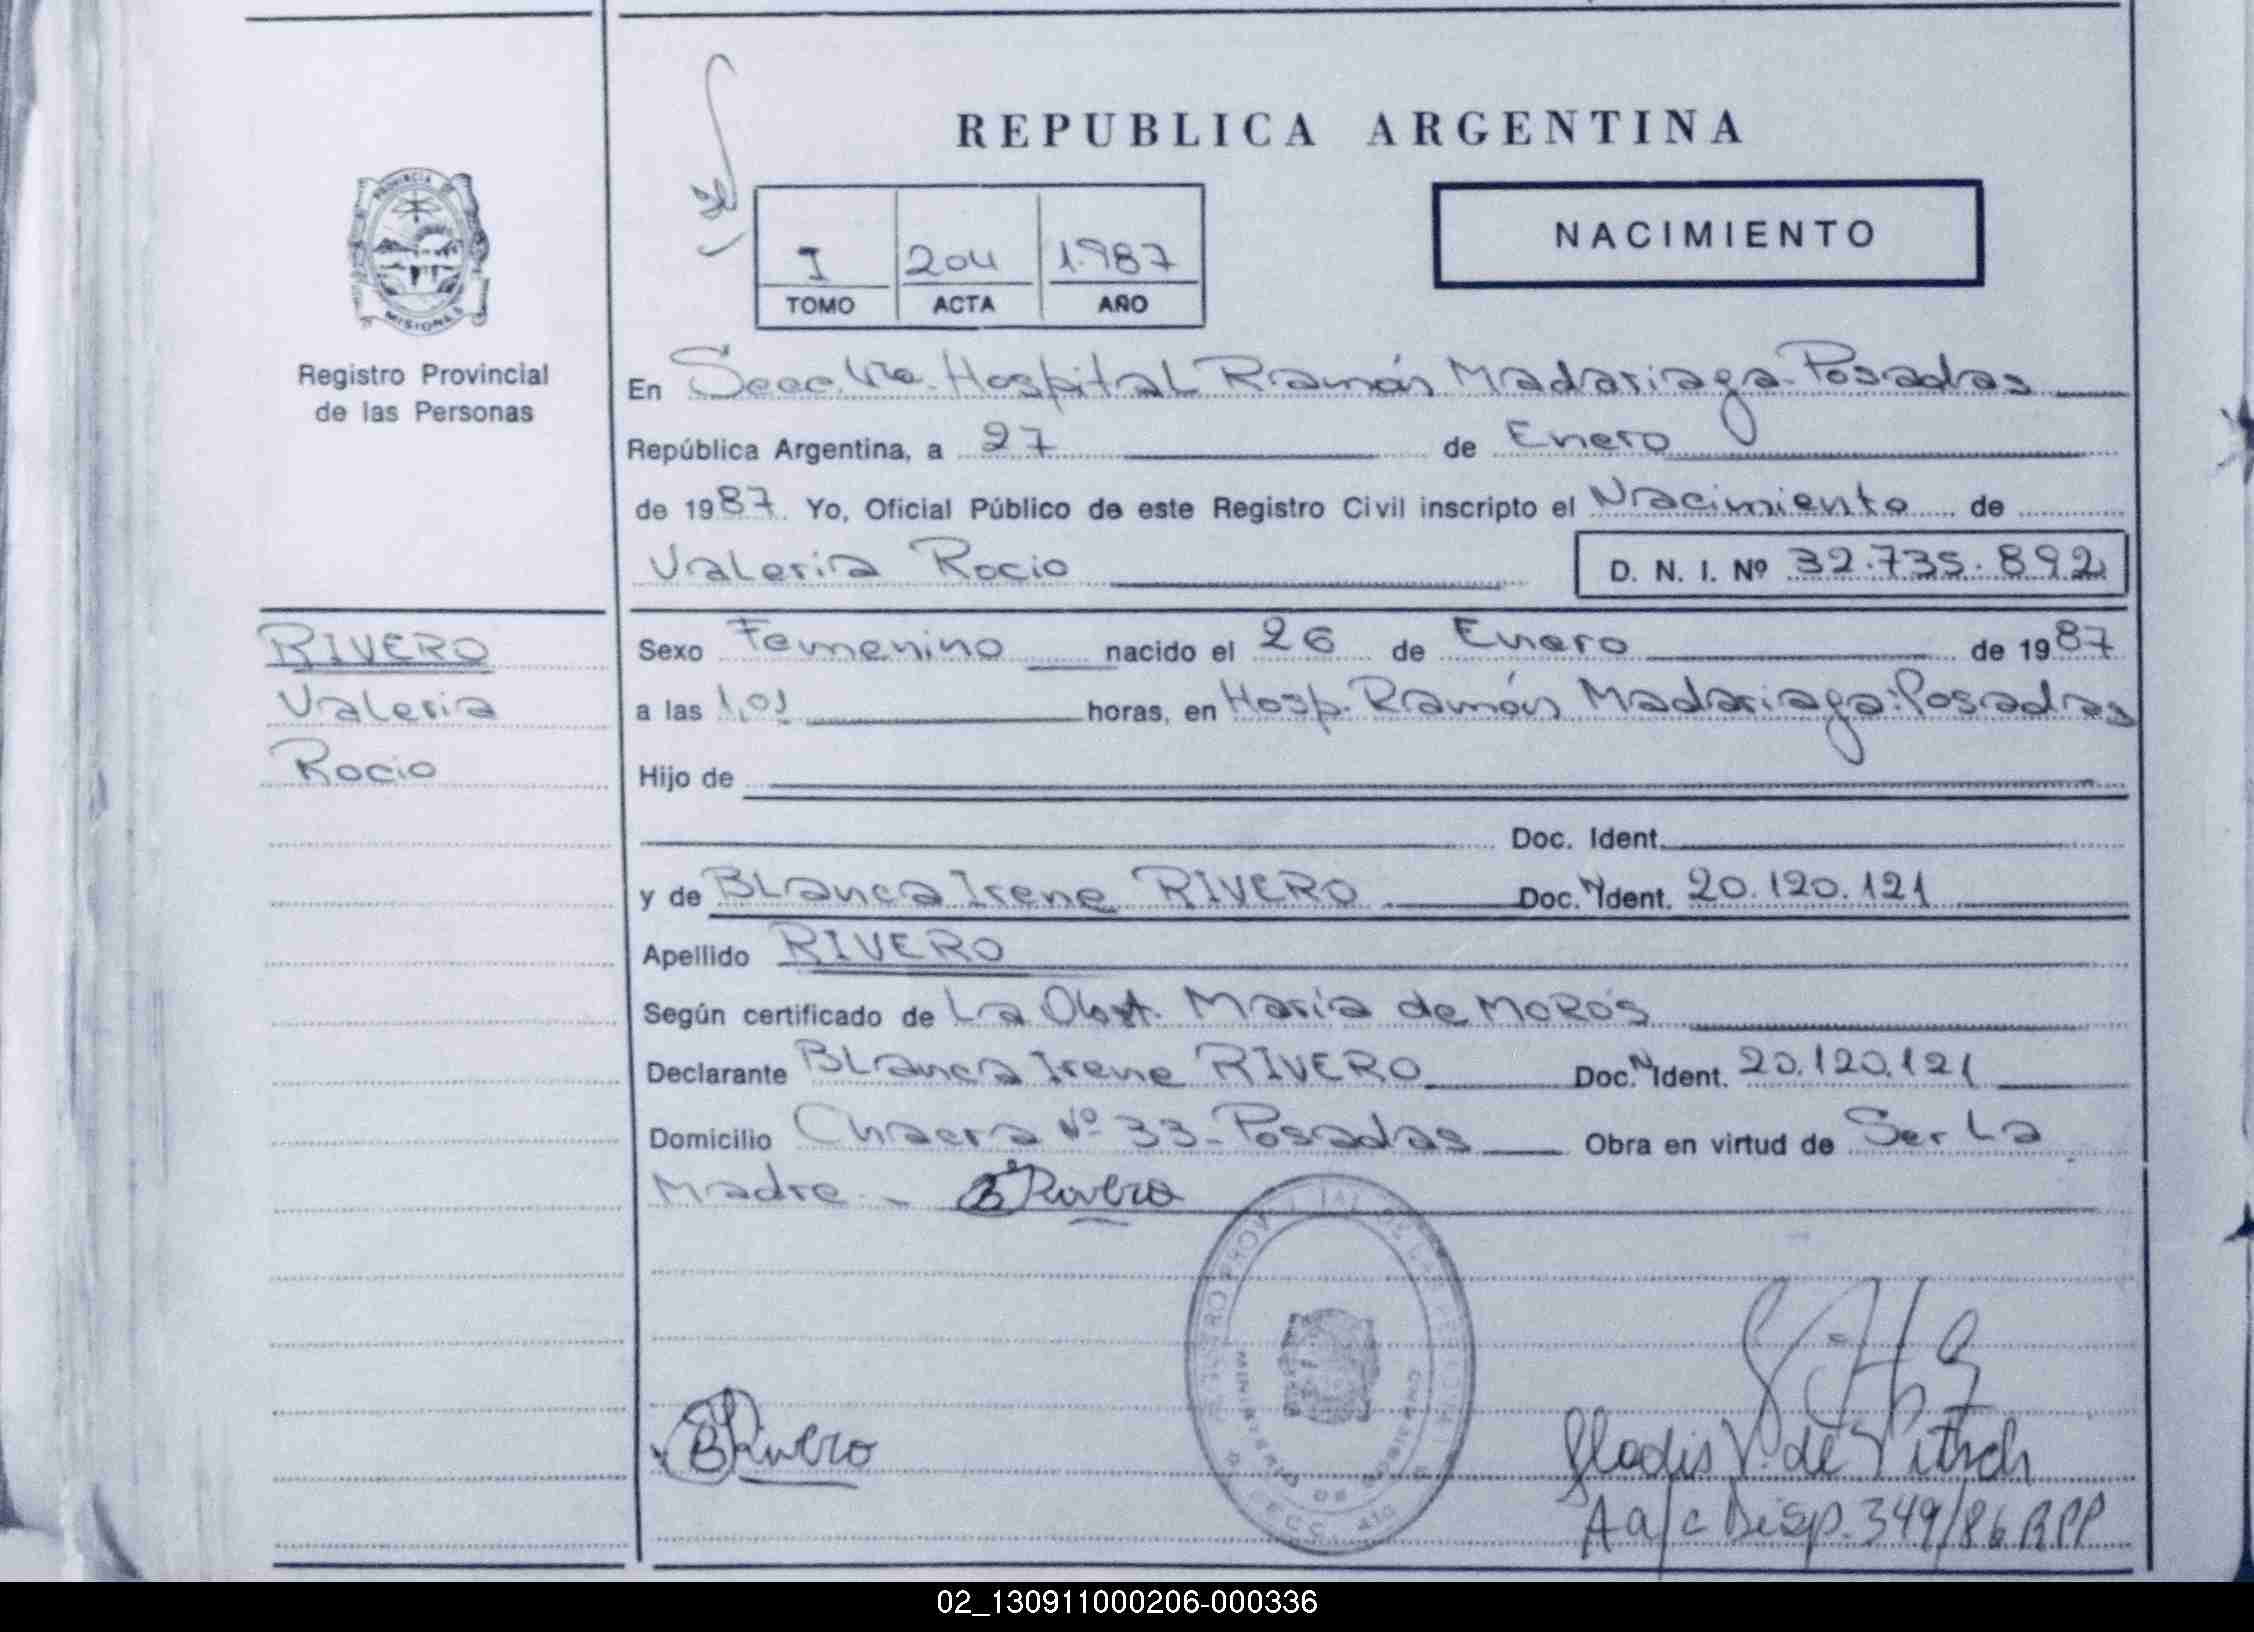 REPUBLICA ARGENTINA
NACIMIENTO
I 204 1987
TOMO ACTA AÑO
PROVINCIA DE
MISIONES
Registro Provincial
de las Personas
En Secc. Hospital Ramón Madariaga-Posadas
República Argentina, a 27 de Enero
de 1987. Yo, Oficial Público de este Registro Civil inscripto el Nacimiento de
Valeria Rocio D. N. I. Nº 32.735.892
RIVERO
Valeria
Rocio
Sexo Femenino nacido el 26 de Enero de 1987
a las 1,01 horas, en Hosp. Ramón Madariaga-Posadas
Hijo de
Doc. Ident.
y de Blanca Irene RIVERO Doc. N Ident. 20.120.121
Apellido RIVERO
Según certificado de La Obst. María de MOROS
Declarante Blanca Irene RIVERO Doc. N Ident. 20.120.121
Domicilio Chacra Nº 33-Posadas Obra en virtud de Ser La
Madre - B Rivero
B Rivero
Gladis V. de
A a/c Disp. 349/86 RPP
02_130911000206-000336